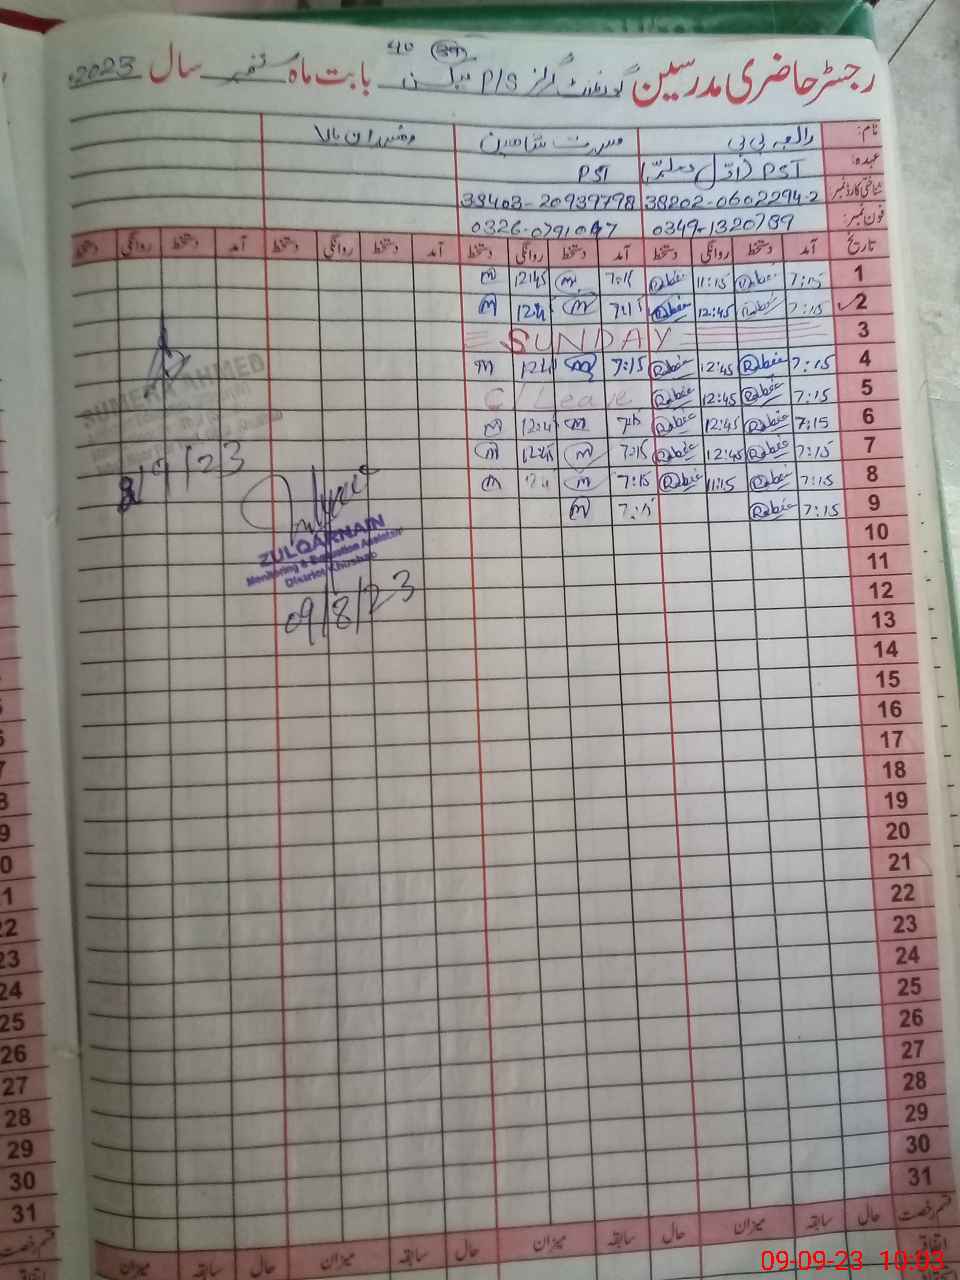 رجسٹر حاضری مدرسین گورنمنٹ گرلز P/S بابت ماہ ستمبر سال 2023
نام: رابعہ بی بی مسرت شاہین
عہدہ: PST (اوّل معلمہ) PST
شناختی کارڈ نمبر 38202-0602294-2 38403-20939798
فون نمبر: 0349-1320789
تاریخ آمد دستخط روانگی دستخط آمد دستخط روانگی دستخط آمد دستخط روانگی دستخط آمد دستخط روانگی دستخط
1 7:15 Rabia 11:15 Rabia 7:15 m 12:45 m
2 7:15 Rabia 12:45 Rabia 7:15 m m
3 SUNDAY
4 7:15 Rabia 12:45 Rabia 7:15 m m
5 7:15 Rabia 12:45 Rabia C/Leave
6 7:15 Rabia 12:45 Rabia 7:15 m m
7 7:15 Rabia 12:45 Rabia 7:15 m 12:45 m
8 7:15 Rabia 11:15 Rabia 7:15 m m
9 7:15 Rabia 7:15 m
SUMERA AHMED
/9/23
ZULQARNAIN
Monitoring & Evaluation Assistant
District Khushab
09/8/23
10
11
12
13
14
15
16
17
18
19
20
21
22
23
24
25
26
27
28
29
30
31
قسم رخصت حال سابقہ میزان حال سابقہ میزان حال سابقہ میزان حال سابقہ میزان
اتفاقیہ
22
23
24
25
26
27
28
29
30
31
قسم رخصت
09-09-23 10:03